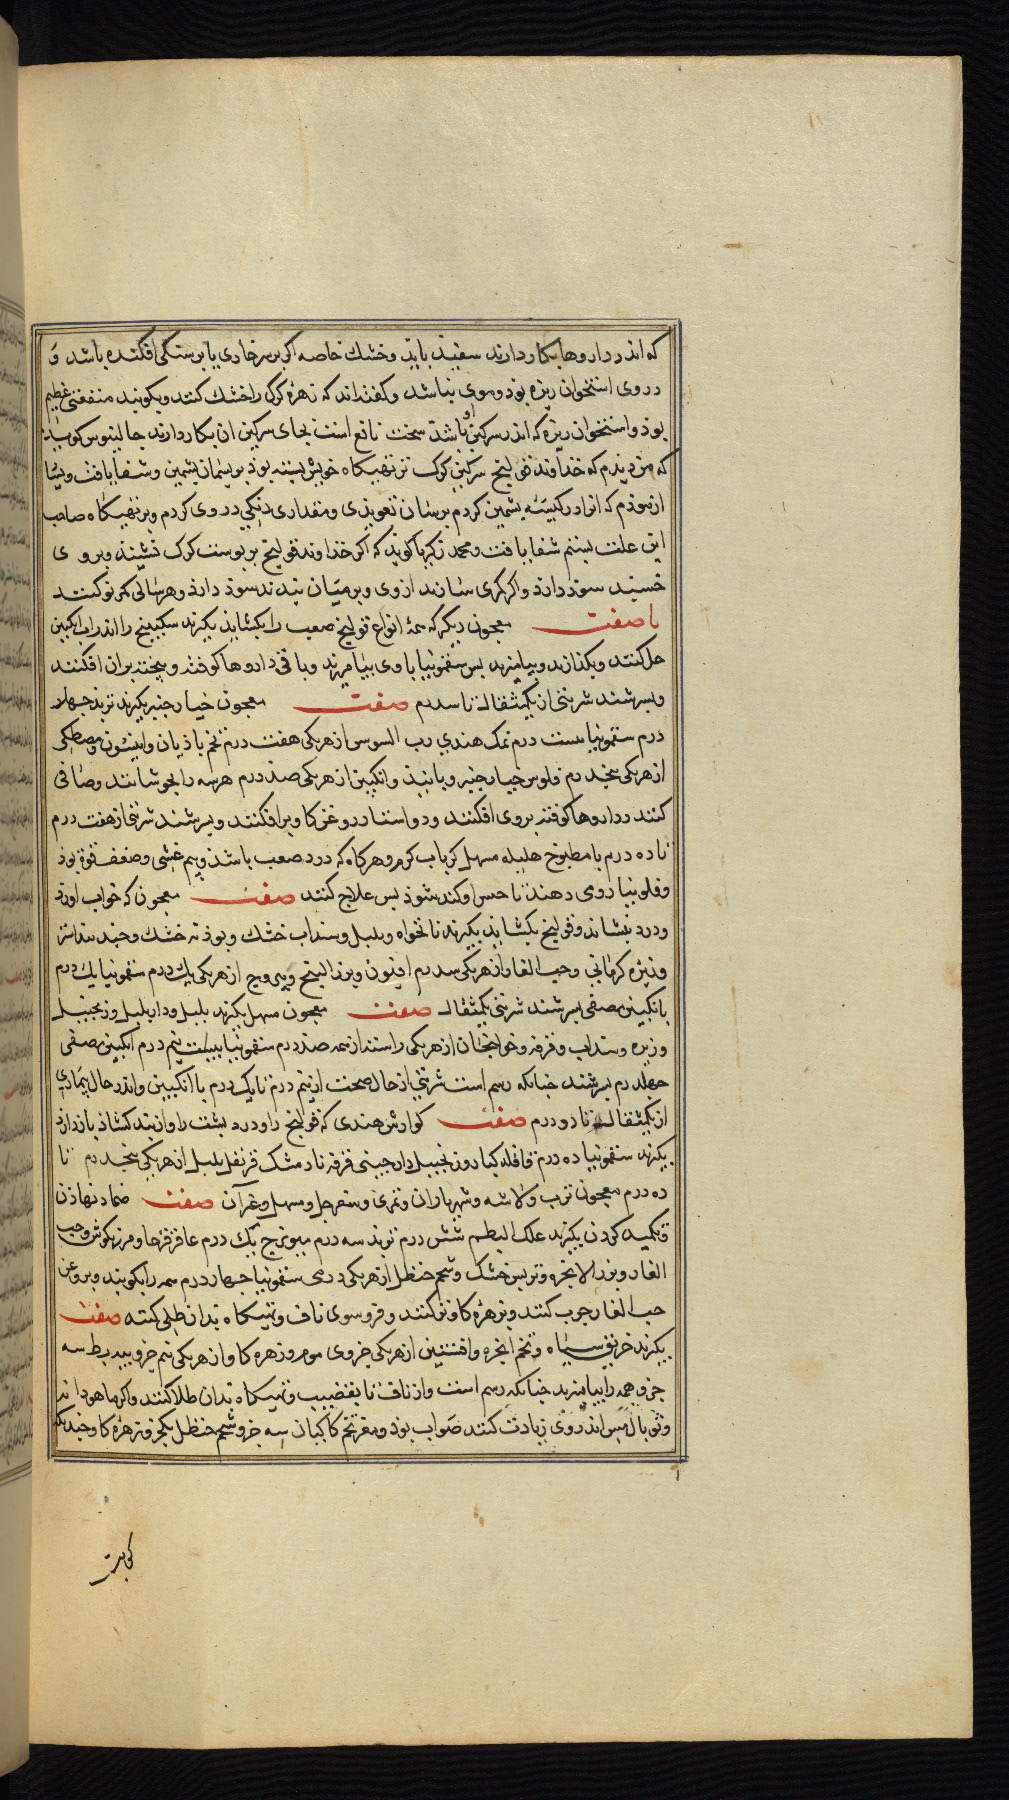 که اندر داروها بکار دارند سفید باید و خشک خاصه اکر بر سر خاری یا بر سنکی افکنده باشد و
در وی استخوان ریزه بوذ و موی نباشد و کفته‌اند که زهره کرک را خشک کنند و بکوبند منفعتی عظیم
بوذ و استخوان ریزه که اندر سرکین او باشد سخت نافع است بجای سرکین ان بکار دارند جالینوس کوید
که من دیدم که خداوند قولنج سرکین کرک بر تهیکاه خویش بسته بوذ بریسمان پشمین و شفا یافت و بسیار
ازموذم که انرا در کیسه پشمین کردم برسان تعویذی و مقداری اندکی در وی کردم و بر تهیکاه صاحب
این علت بستم شفا یافت و محمد زکریا کوید که اکر خداوند قولنج بر پوست کرک نشیند و بر وی
خسپد سوذ دارد و اکر کمری سازند از وی و بر میان بندند سوذ دارذ و هر سالی کمر نو کنند
با صفت معجون دیکر که همه انواع قولنج صعب را بکشاید بکیرند سکبینج را اندر اب انکبین
حل کنند و بکذازند و بیامیزند پس سقمونیا با وی بیامیزند و باقی داروها کوفته و بیخته بران افکنند
و بسرشند شربتی از یکمثقال تا سدرم صفت معجون خیارجنبر بکیرند تربد جهل
درم سقمونیا بیست درم نمک هندی رب السوس از هر یکی هفت درم تخم باذیان و انیسون و مصطکی
از هر یکی پنجدرم فلوس خیارجنبر و بانیذ و انکبین از هر یکی صد درم هر سه را بجوشانند و صافی
کنند و داروها کوفته بروی افکنند و دو استار روغن کاو بر افکنند و بسرشند شربتی از هفت درم
تا ده درم با مطبوخ هلیله مسهل کرباب کرم و هر کاه که درد صعب باشذ و بیم غشی و ضعف قوة بوذ
و فلونیا روی دهند تا حس او کند شوذ پس علاج کنند صفت معجون که خواب اورد
و درد بنشاند و قولنج بکشاید بکیرند نانخواه و بلبل و سنداب خشک و بوذنه خشک و جندبیدستر
و زیره کرمانی و حب الغار از هر یکی سدرم افیون و بزر البنج و یبروج از هر یکی یک درم سقمونیا یک درم
بانکبین مصفی بسرشند شربتی یکمثقال صفت معجون مسهل بکیرند بلبل و داربلبل و زنجبیل
و زیره و سنداب و قرفه و خولنجان از هر یکی راستا راست همه صد درم سقمونیا بیست بنج درم انکبین مصفی
جهلدرم بسرشند جنانکه رسم است شربتی از حال صحت از نیم درم تا یک درم با انکبین و اندر حال بیماری
از یکمثقال تا دو درم صفت کوارش هندی که قولنج را و درد پشت را و باذ بند کشاذ باز دارد
بکیرند سقمونیا ده درم قاقله کبار و زنجبیل دارجینی قرفه نارمشک قرنفل بلبل از هر یکی بنجدرم تا
ده درم معجون ترب ولاشه و شهریاران و تمری و سفرجل و مسهل و غیر آن صفت ضماد نهاذن
و تکمید کردن بکیرند علک البطم شش درم تربد سه درم میویزج یک درم عاقرقرحا و مرزنکوش و حب
الغار و بزر الانجره و تربس خشک و شحم حنظل از هر یکی درمی سقمونیا جهار درم همه را بکوبند و بروغن
حب الغار جوب کنند و بزهره کاو تر کنند و فرو سوی ناف و تهیکاه بدان طلی کنند صفت
بکیرند خربق سیاه و تخم انجره و افسنتین از هر یکی جزوی موم و زهره کاو از هر یکی نیم جزو پیه بط سه
جزو همه را بیامیزند جنانکه رسم است و از ناف تا بقضیب و تهیکاه بدان طلا کنند و اکر ماهودانه
و توبال مس اندر وی زیادت کنند صواب بوذ و مغز تخم کاجیان سه جزو شحم حنظل یکجزو زهره کاو جندانکه
کوبت